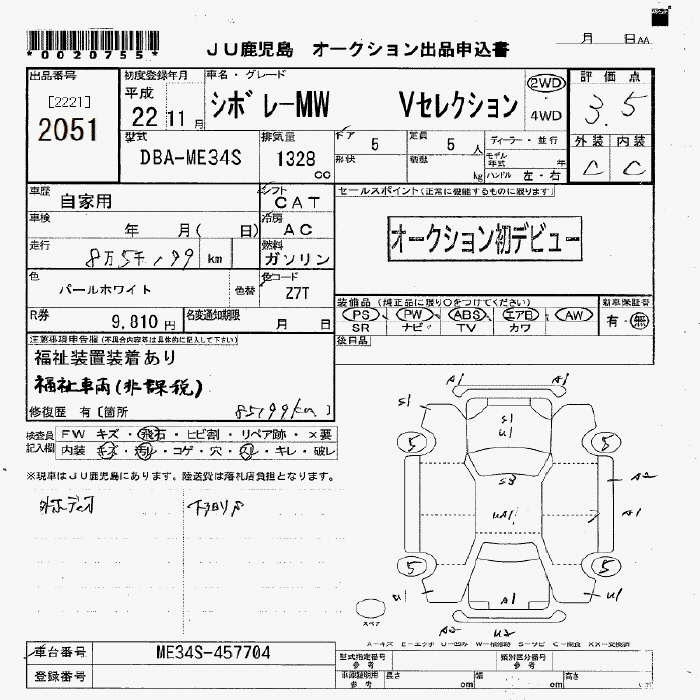 *0020755*
JU鹿児島 オークション出品申込書
月 日 AA
出品番号
[2221]
2051
初度登録年月
平成
22 11月
車名・グレード
シボレーMW Vセレクション
2WD
・
4WD
評価点
3.5
型式
DBA-ME34S
排気量
1328
cc
ドア
5
形状
定員
5 人
積載
kg
ディーラー・並行
モデル年式 年
ハンドル 左・右
外装 内装
C C
車歴
自家用
シフト
CAT
セールスポイント(正常に機能するものに限ります)
オークション初デビュー
車検
年 月( 日)
冷房
AC
走行
8万5千199 km
燃料
ガソリン
色
パールホワイト
色替
色コード
Z7T
装備品(純正品に限り○をつけてください)
PS PW ABS エアB AW
SR ナビ TV カワ
新車保証書
有・無
R券
9,810 円
名変通知期限
月 日
後日品
注意事項申告欄(不具合内容等は具体的に記入して下さい)
福祉装置装着あり
福祉車両(非課税)
修復歴 有[箇所 85199km ]
検査員記入欄
FW キズ・飛石・ヒビ割・リペア跡・×要
内装・キズ・汚レ・コゲ・穴・スレ・キレ・破レ
※現車はJU鹿児島にあります。陸送費は落札店負担となります。
A1 A1
S1
S1
U1
5 5
S3
A2
UA1
A1
5 5
U1 A1 U1
スペア
A2 U2
A-キズ E-エクボ U-凹み W-補修跡 S-サビ C-腐食 XX-交換済
車台番号
ME34S-457704
登録番号
型式指定番号
参考
類別区分番号
参考
車庫証明用
参考
長さ cm
幅 cm
高さ cm